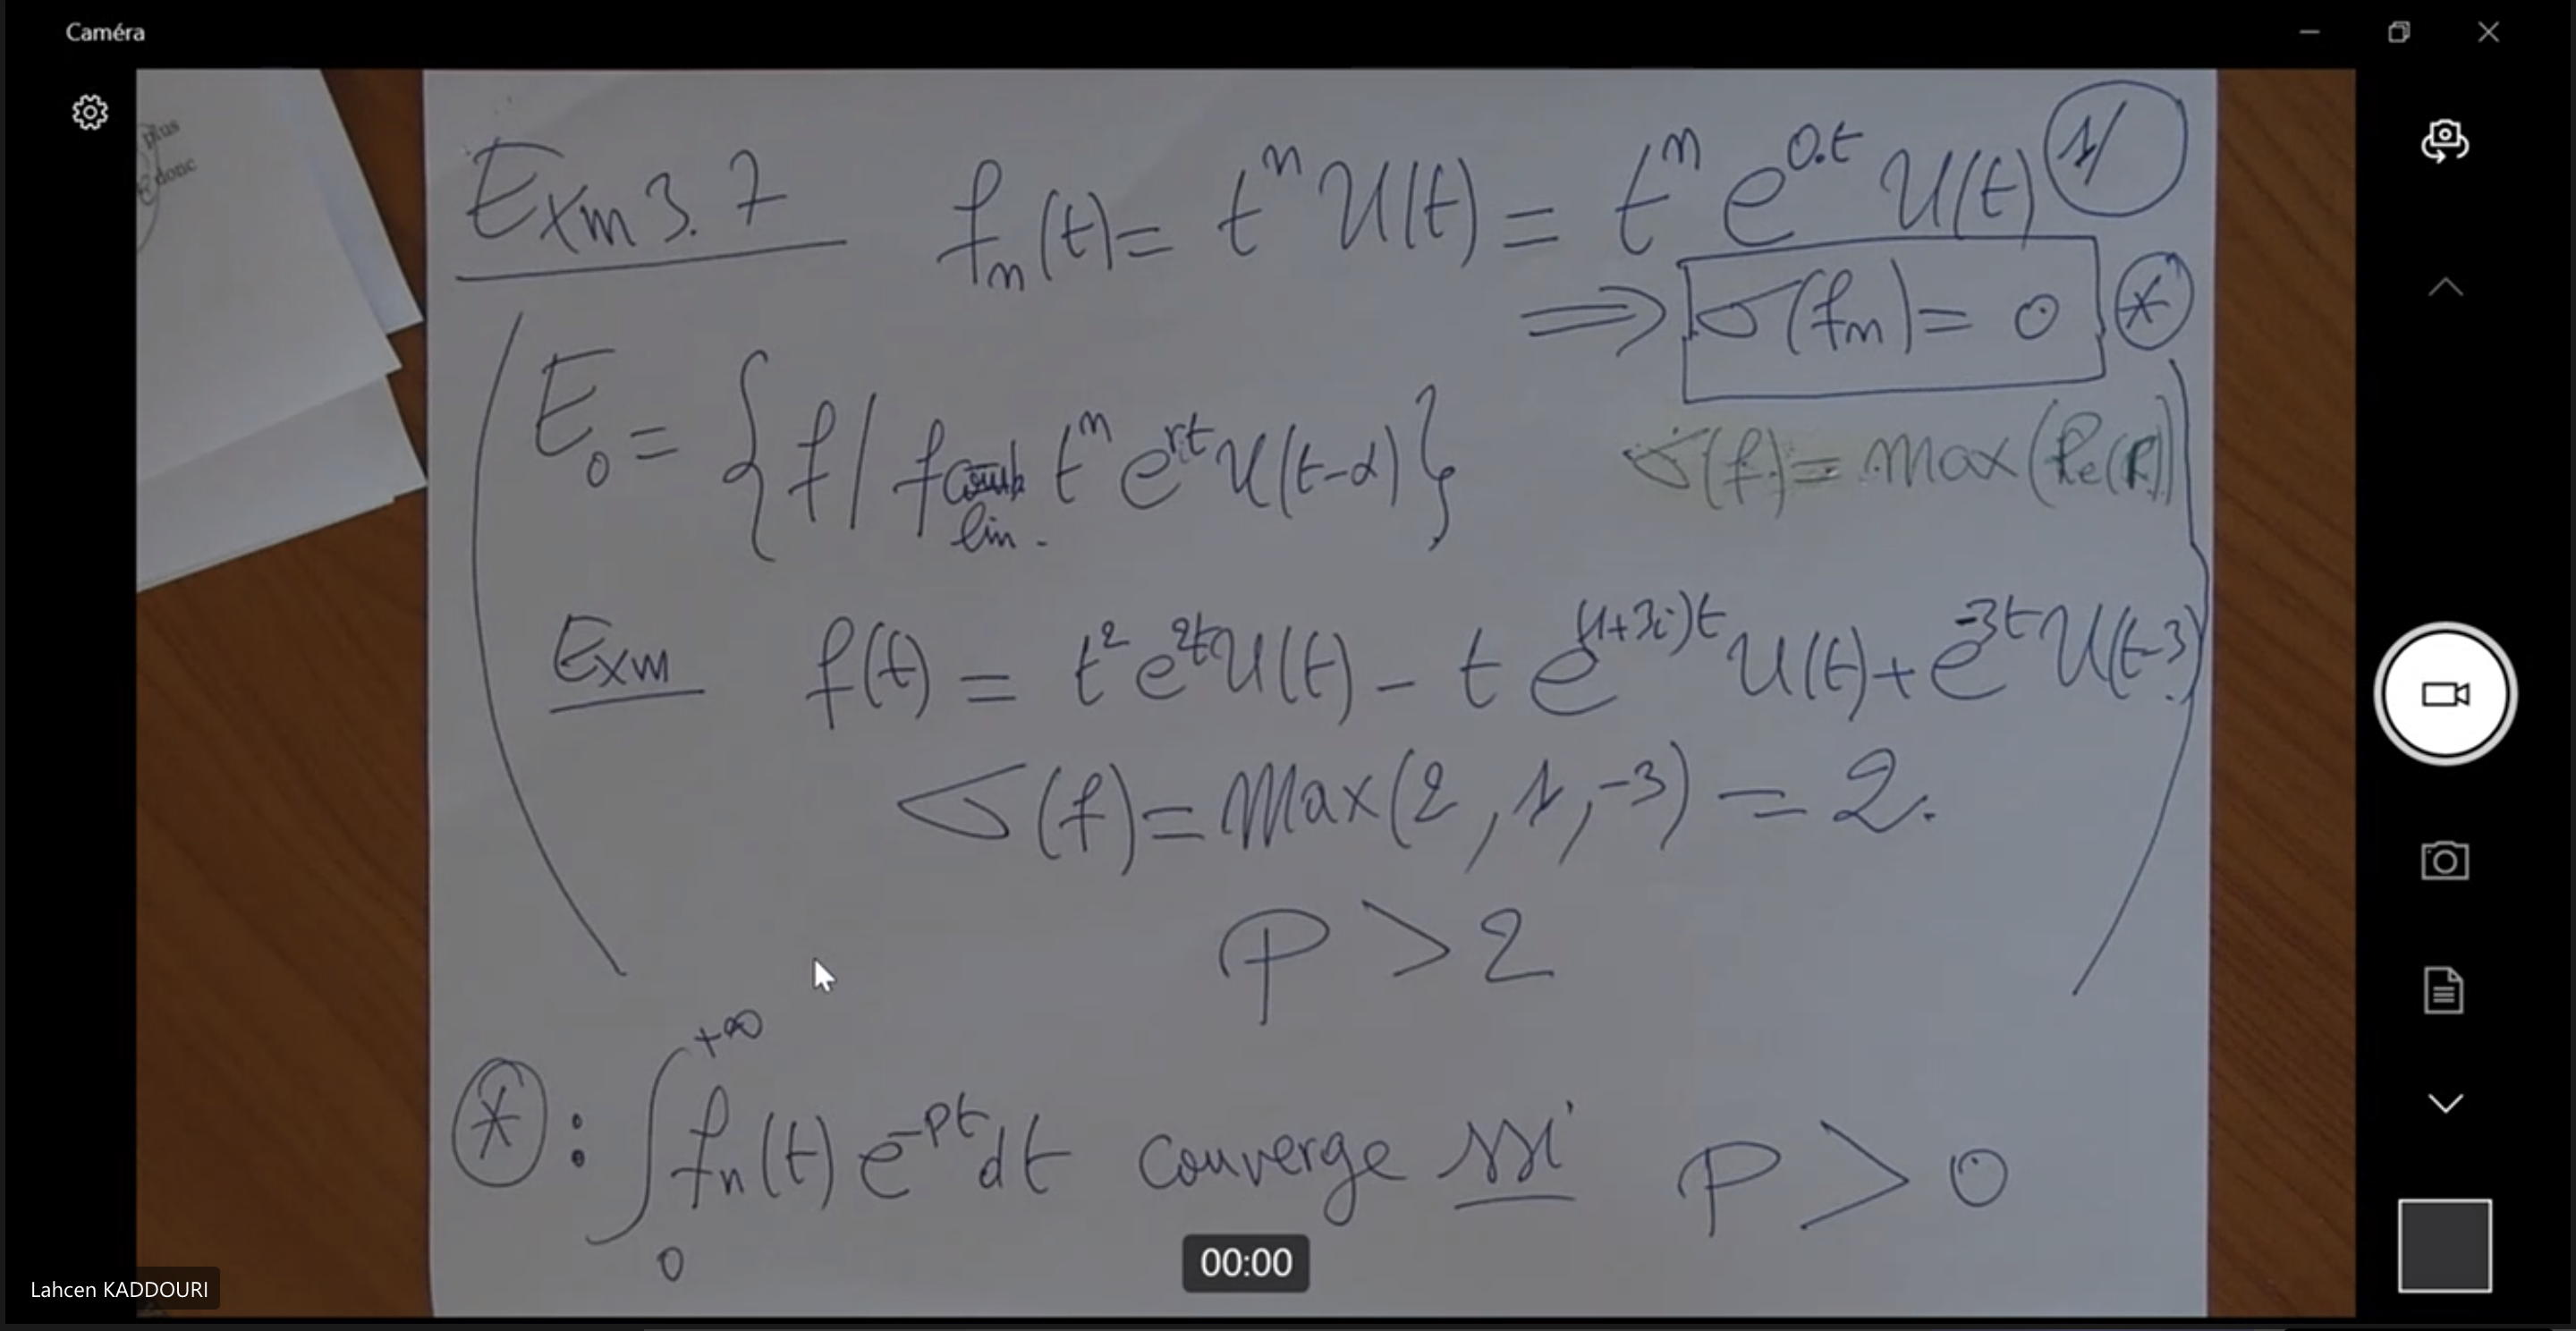 Caméra
plus
donc
Exm 3.7 fₙ(t) = tⁿ U(t) = tⁿ e^{0.t} U(t) 1/
⟹ σ(fₙ) = 0 *
E₀ = { f / f comb lin. tⁿ e^{rt} U(t-α) } σ(f) = max(Re(r))
Exm f(t) = t² e^{2t} U(t) - t e^{(1+3i)t} U(t) + e^{-3t} U(t-3)
σ(f) = Max(2, 1, -3) = 2.
P > 2
* : ∫₀^{+∞} fₙ(t) e^{-pt} dt converge ssi P > 0
00:00
Lahcen KADDOURI